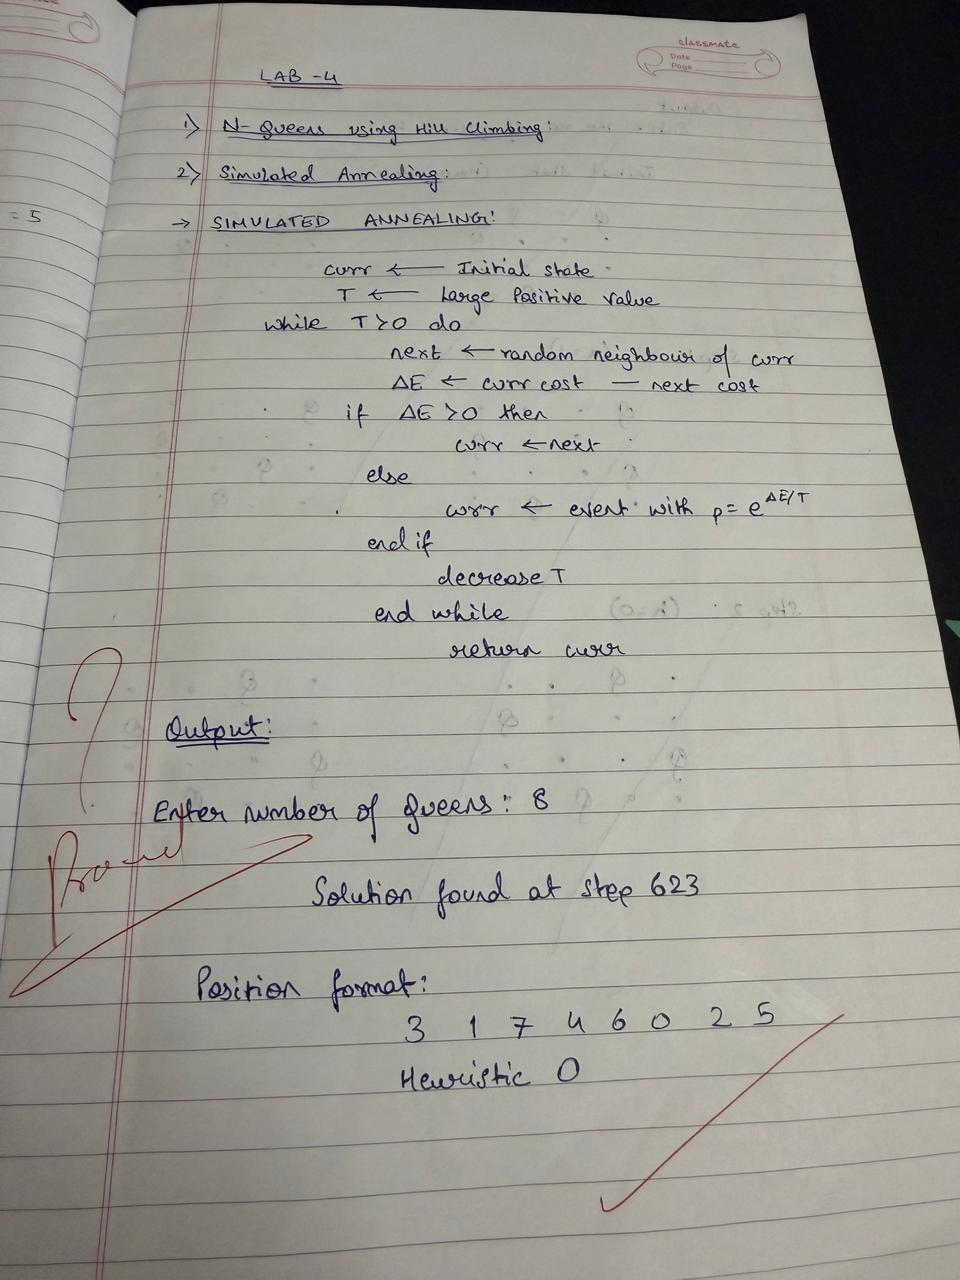 classmate
Date
Page
LAB - 4
1) N-Queens using Hill Climbing:
2) Simulated Annealing:
= 5
→ SIMULATED ANNEALING:
curr ← Initial state
T ← Large Positive value
while T>0 do
next ← random neighbour of curr
ΔE ← curr cost — next cost
if ΔE >0 then
curr ← next
else
curr ← event with p= e^ΔE/T
end if
decrease T
end while
return curr
?
Output:
Enter number of queens: 8
Solution found at step 623
Position format:
3 1 7 4 6 0 2 5
Heuristic 0